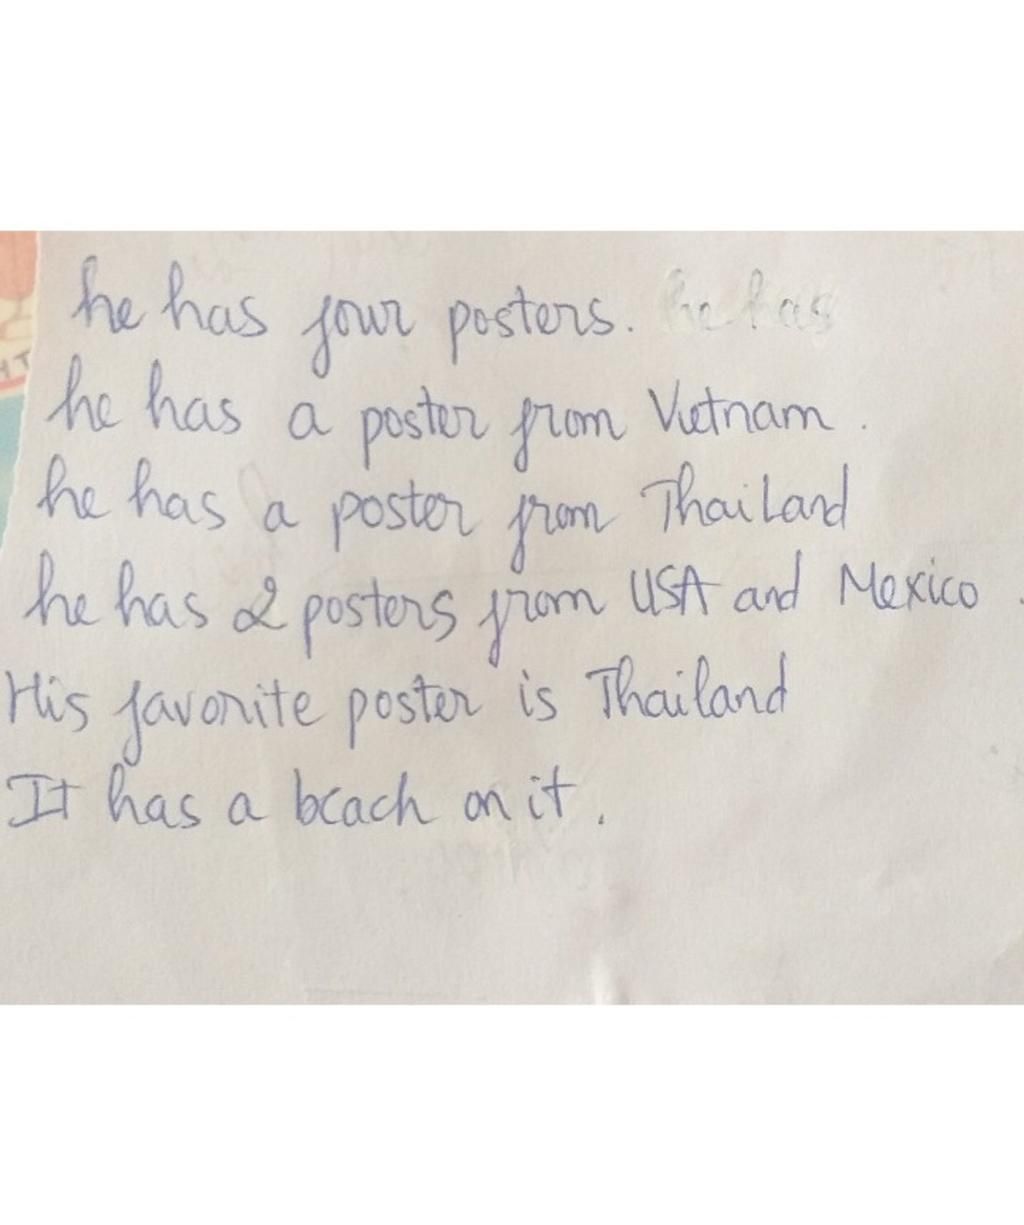 he has four posters. he has
he has a poster from Vietnam.
he has a poster from Thailand
he has 2 posters from USA and Mexico.
His favorite poster is Thailand
It has a beach on it.